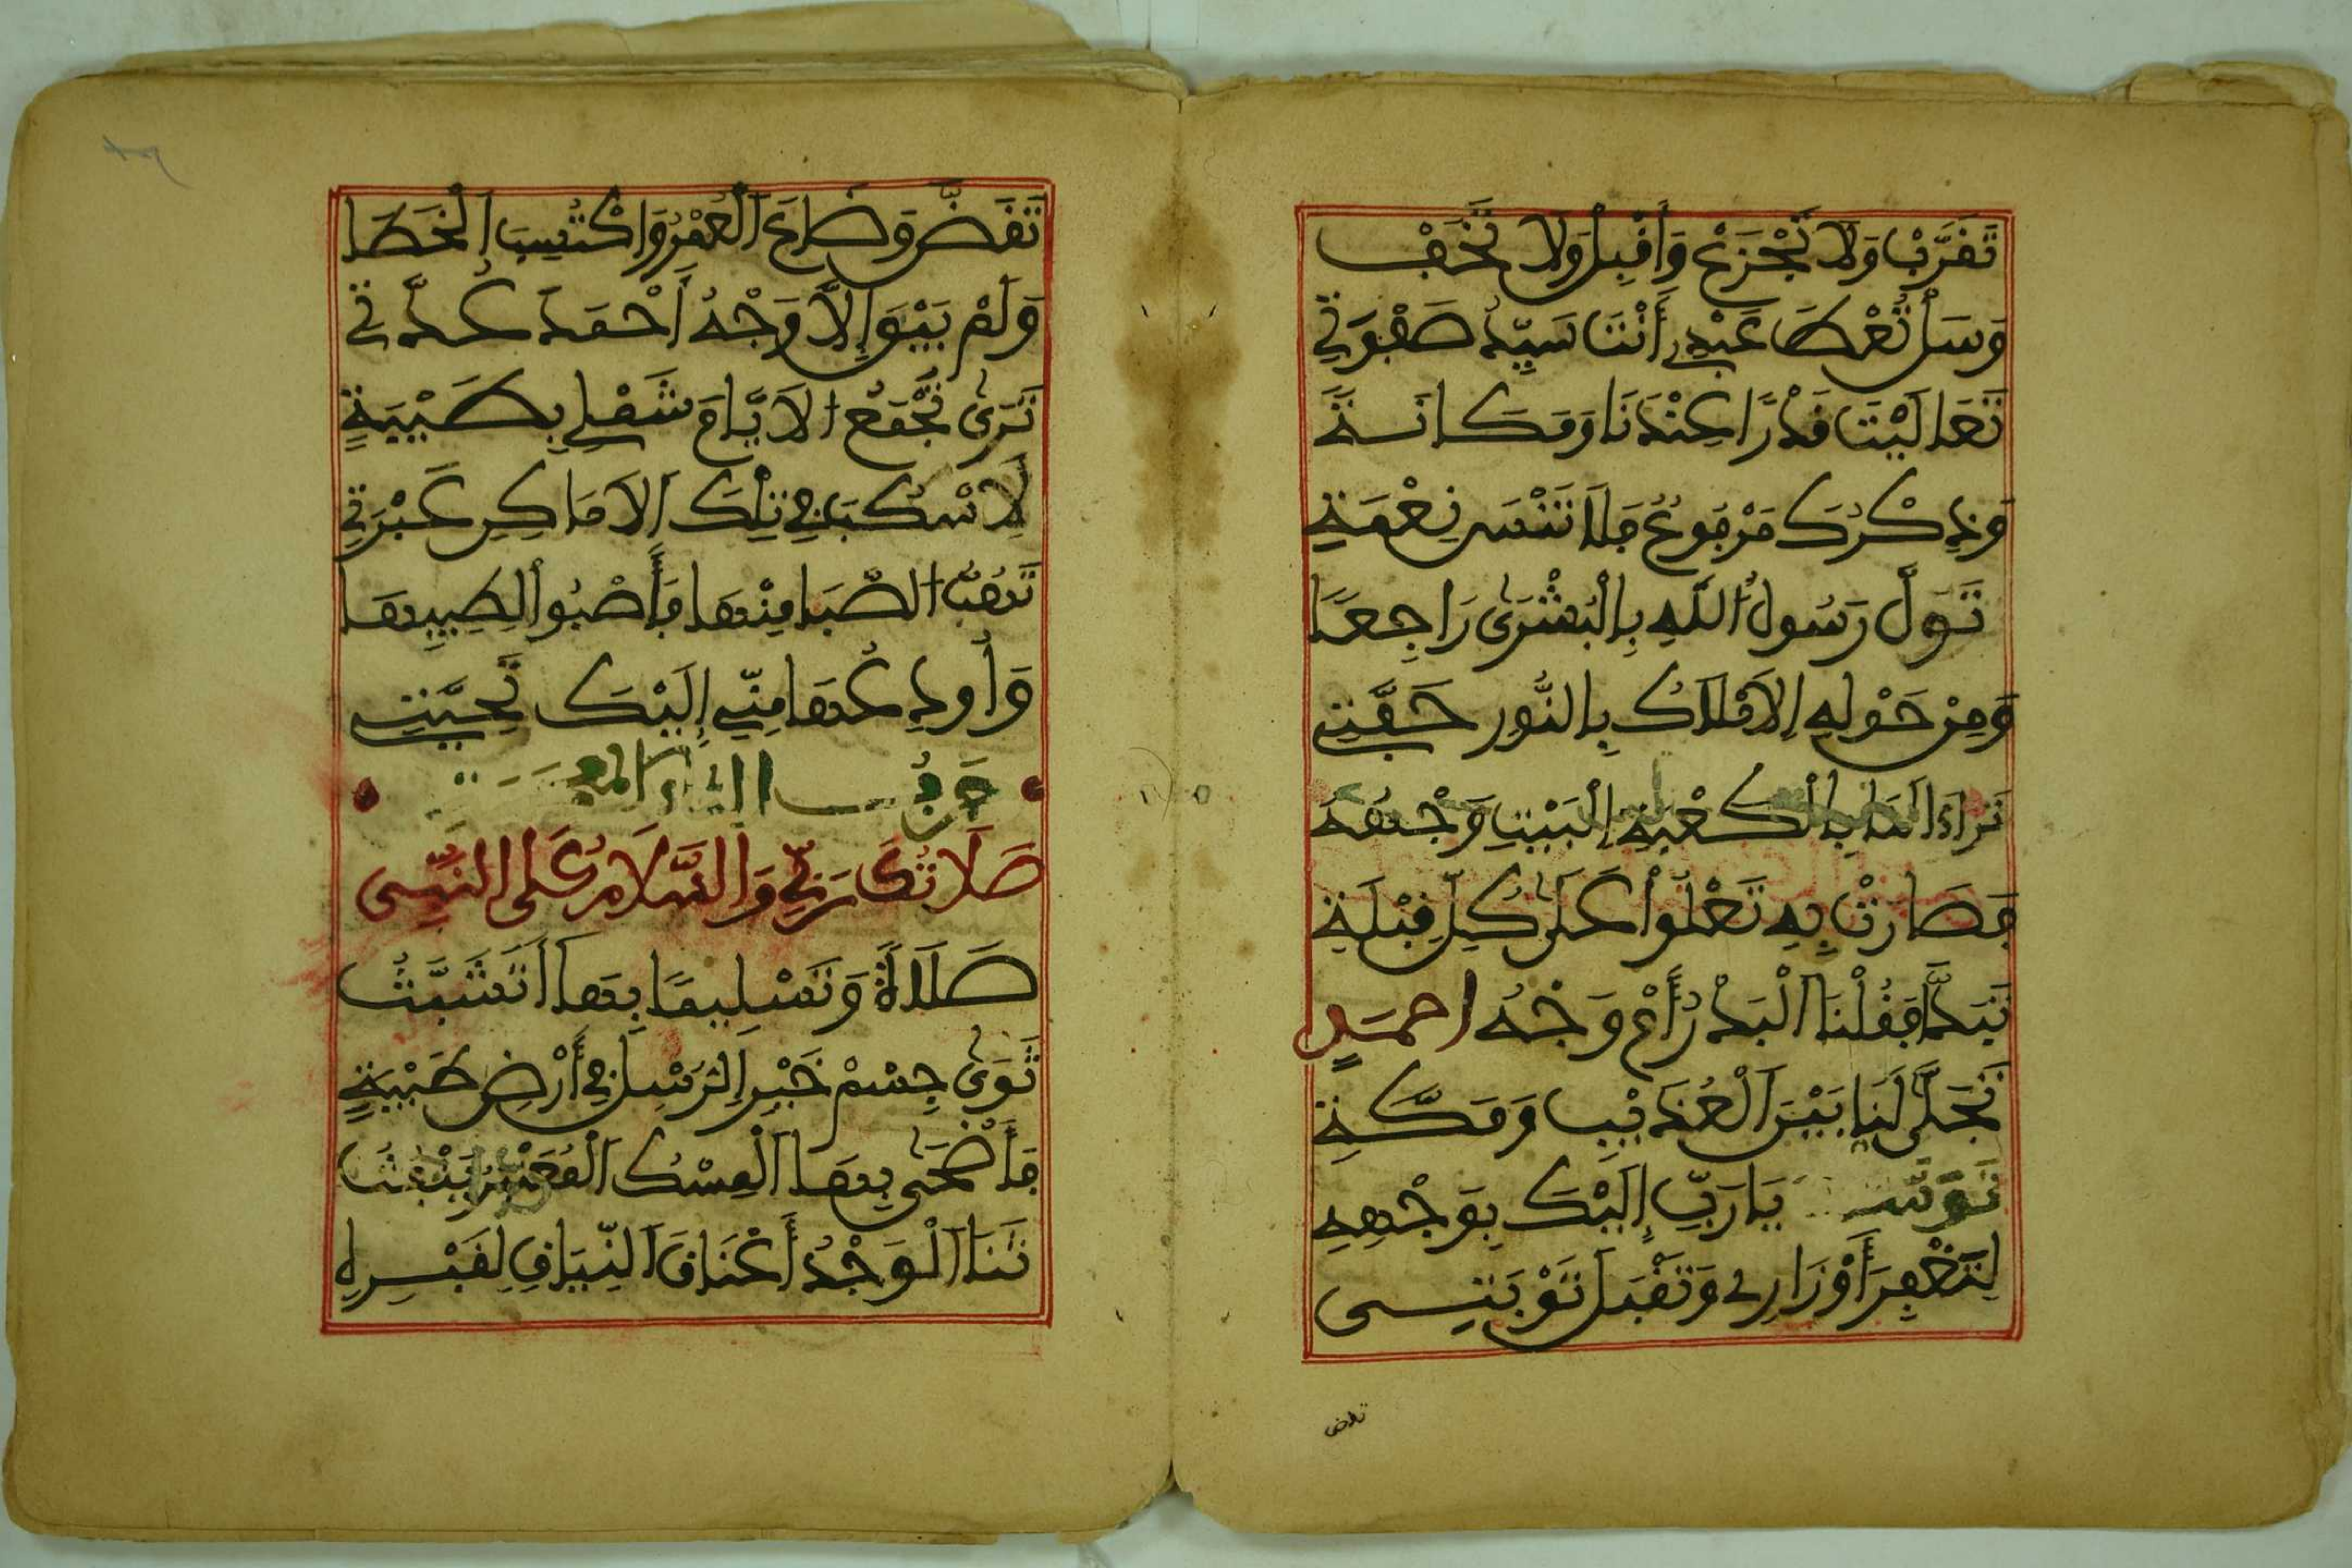 تَقَرَّبْ وَلَا تَجْزَعْ وَأَقْبِلْ وَلَا تَخَفْ
وَسَلْ تُعْطَ عَبْدِي أَنْتَ سَيِّدُ صَفْوَتِي
تَعَالَيْتَ قَدْرًا عِنْدَنَا وَمَكَانَةً
وَذِكْرُكَ مَرْفُوعٌ فَلَا تَنْسَ نِعْمَتِي
تَوَلَّ رَسُولُ اللَّهِ بِالْبُشْرَى رَاجِعًا
وَمِنْ حَوْلِهِ الْأَمْلَاكُ بِالنُّورِ حَفَّتِ
تَرَاءَا لَنَا بِالْكَعْبَةِ الْبَيْتِ وَجْهُهُ
فَصَارَتْ بِهِ تَعْلُوا عَلَى كُلِّ قِبْلَةِ
تَبَدَّا فَقُلْنَا الْبَدْرُ أَمْ وَجْهُ احمَدٍ
تَجَلَّى لَنَا بَيْنَ الْعُذَيْبِ وَمَكَّةِ
يَا رَبِّ إِلَيْكَ بِوَجْهِهِ
لِتَغْفِرَ أَوْزَارِي وَتَقْبَلَ تَوْبَتِي
تقض
تَقَضَّ وَضَاعَ الْعُمْرُ وَاكْتُسِبَ الْخَطَا
وَلَمْ يَبْقَ إِلَّا وَجْهُ أَحْمَدَ عُدَّتِي
تَرَى تَجْمَعُ الْأَيَّامُ شَمْلِي بِطَيْبَةٍ
لِأَسْكُبَ فِي تِلْكَ الْأَمَاكِنِ عَبْرَتِي
تَهُبُّ الصَّبَا مِنْهَا فَأَصْبُوا لِطِيبِهَا
وَأُودِعُهَا مِنِّي إِلَيْكَ تَحِيَّتِي
حَرْفُ الثاء
صَلَاتُكَ رَبِّي وَالسَّلَامُ عَلَى النَّبِي
صَلَاةً وَتَسْلِيمًا بِهَا أَتَشَبَّثُ
ثَوَى جِسْمُ خَيْرِ الرُّسْلِ فِي أَرْضِ طَيْبَةٍ
فَأَضْحَى بِهَا الْمِسْكُ الْمُعَنْبَرُ يَنْفُثُ
ثَنَا الْوَجْدُ أَعْنَاقَ النِّيَاقِ لِقَبْرِهِ